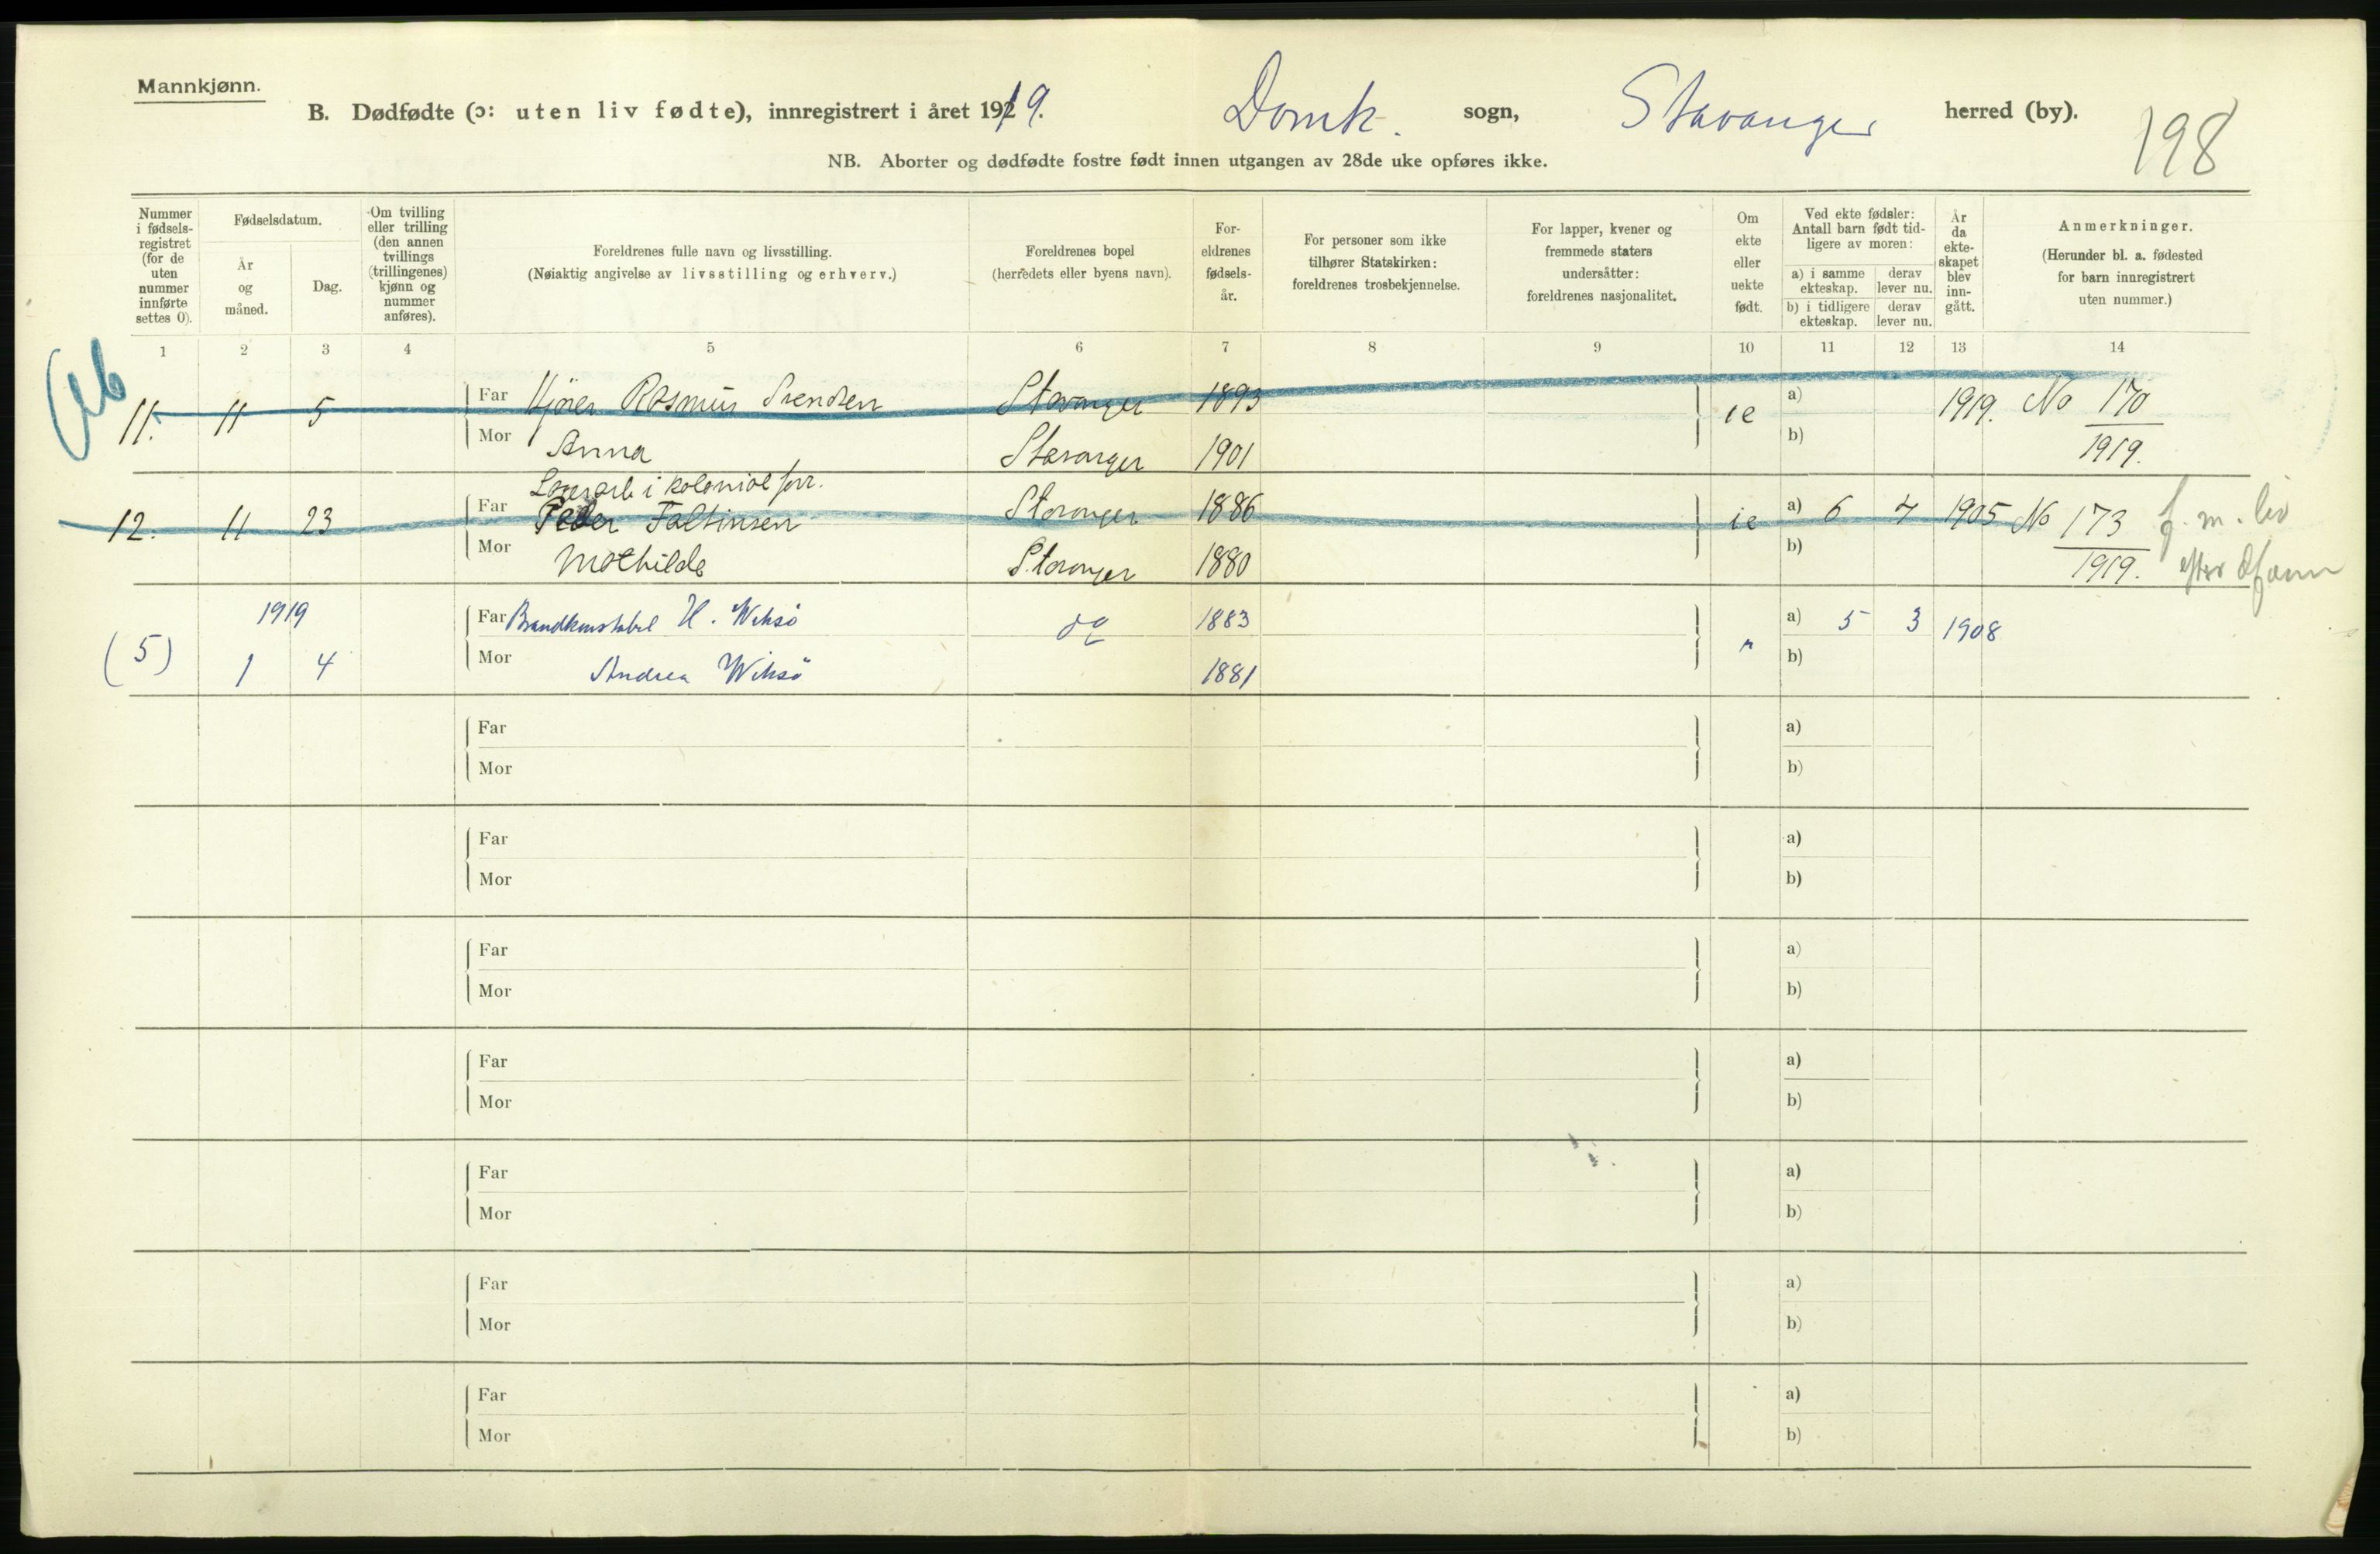 Mannkjønn.
B. Dødfødte (ɔ: uten liv fødte), innregistrert i året 1919.
Domk. sogn, Stavanger herred (by).
198
NB. Aborter og dødfødte fostre født innen utgangen av 28de uke opføres ikke.
Nummer i fødsels-registret (for de uten nummer innførte settes 0).
Fødselsdatum.
År og måned.
Dag.
Om tvilling eller trilling (den annen tvillings (trillingenes) kjønn og nummer anføres).
Foreldrenes fulle navn og livsstilling.
(Nøiaktig angivelse av livsstilling og erhverv.)
Foreldrenes bopel
(herredets eller byens navn).
For-eldrenes fødsels-år.
For personer som ikke tilhører Statskirken: foreldrenes trosbekjennelse.
For lapper, kvener og fremmede staters undersåtter: foreldrenes nasjonalitet.
Om ekte eller uekte født.
Ved ekte fødsler: Antall barn født tid-ligere av moren:
a) i samme ekteskap. derav lever nu.
b) i tidligere ekteskap. derav lever nu.
År da ekte-skapet blev inn-gått.
Anmerkninger.
(Herunder bl. a. fødested for barn innregistrert uten nummer.)
1 2 3 4 5 6 7 8 9 10 11 12 13 14
11. 11 5 Far Rasmus Svendsen Stavanger 1893 ie a) 1919. No 170
Mor Anna Stavanger 1901 b) 1919.
i kolonial forr.
12. 11 23 Far Peder Faltinsen Stavanger 1886 ie a) 6 4 1905 No 173 f. m. liv
Mor Mathilde Stavanger 1880 b) 1919.
1919 Far Brandkonstabel H. Wiksö 1883 " a) 5 3 1908
(5) 1 4 Mor Andrea Wiksö 1881 b)
Far a)
Mor b)
Far a)
Mor b)
Far a)
Mor b)
Far a)
Mor b)
Far a)
Mor b)
Far a)
Mor b)
Far a)
Mor b)